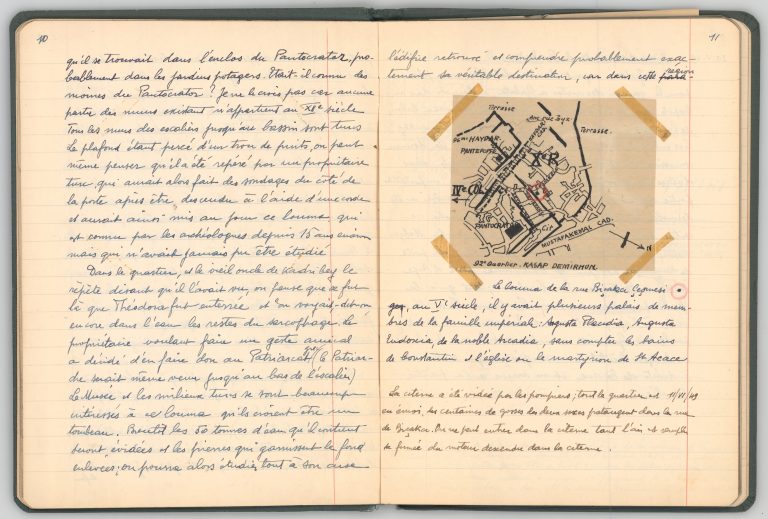 10
qu'il se trouvait dans l'enclos du Pantocrator, pro-
bablement dans les jardins potagers. Etait-il connu des
moines du Pantocrator? Je ne le crois pas car aucune
partie des murs existant n'appartient au XIIe siècle
Tous les murs des escaliers jusqu'au bassin sont turcs
Le plafond étant percé d'un trou de puits, on peut
même penser qu'il a été repéré par un propriétaire
turc, qui aurait alors fait des sondages du côté de
la porte après être descendu à l'aide d'une corde
et aurait ainsi mis au jour ce louma qui
est connu par les archéologues depuis 15 ans environ
mais qui n'avait jamais pu être étudié
Dans le quartier, et le vieil oncle de Kadri bey le
répète disant qu'il l'avait vu, on pense que ce fut
là que Théodora fut enterrée et on voyait
encore dans l'eau les restes du sarcophage. Le
propriétaire voulant faire un geste amical
a décidé d'en faire don au Patriarcat (le Patriar-
che serait même venu jusqu'au bas de l'escalier)
Le Musée et les milieux turcs se sont beaucoup
intéressés à ce louma qu'ils croient être un
tombeau. Bientôt les 50 tonnes d'eau qu'il contient
seront évidées et les pierres qui garnissent le fond
enlevées, on pourra alors étudier tout à son aise
11
l'édifice retrouvé et comprendre probablement exac-
tement sa véritable destination, car dans cette région
Terrasse
Terrasse.
HAYDAR.
PANTEPOPTE
XeR
IVe COL
PANTOCRATOR
MUSTAFAKEMAL CAD.
N
92e Quartier. KASAP DEMIRHUN.
Le Louma de la rue Biçakce Ceşmesi
au Ve siècle, il y avait plusieurs palais de mem-
bres de la famille impériale: Augusta Placidia, Augusta
Eudoxia de la noble Arcadia, sans compter les bains
de Constantin et l'église ou le martyrion de St Acace
La citerne a été vidée par les pompiers; tout le quartier est 11/VI/49
en émoi, des centaines de gosses des deux sexes pataugent dans la rue
de Biçaka. On ne peut entrer dans la citerne tant l'air est rempli
de fumée du moteur descendu dans la citerne.